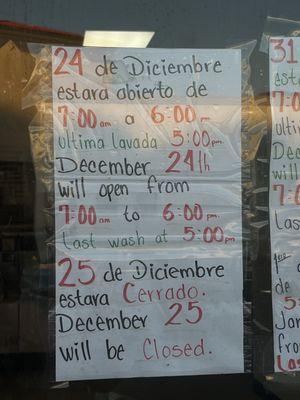 24 de Diciembre
estara abierto de
7:00 am a 6:00 pm
ultima lavada 5:00 pm.
December 24th
will open from
7:00 am to 6:00 pm.
Last wash at 5:00 pm
25 de Diciembre
estara Cerrado.
December 25
will be Closed.
31
esta
7:0
ulti
Dec
will
7:
Las
1ero
de
5:
Jan
fro
Las